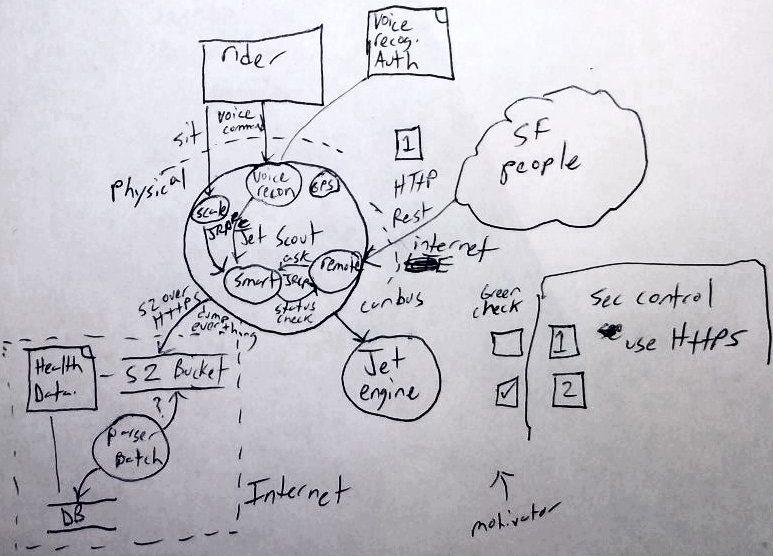 rider
Voice
recog.
Auth
sit
voice
comm
SF
people
1
HTTP
Rest
Physical
voice
recon
GPS
scale
Jet Scout
internet
ask
remote
smart
status
check
canbus
S2 over
HTTPS
dump
everything
Green
check
Sec control
1
use HTTPS
2
Health
Data.
S2 Bucket
?
Jet
engine
parser
batch
DB
Internet
motivator